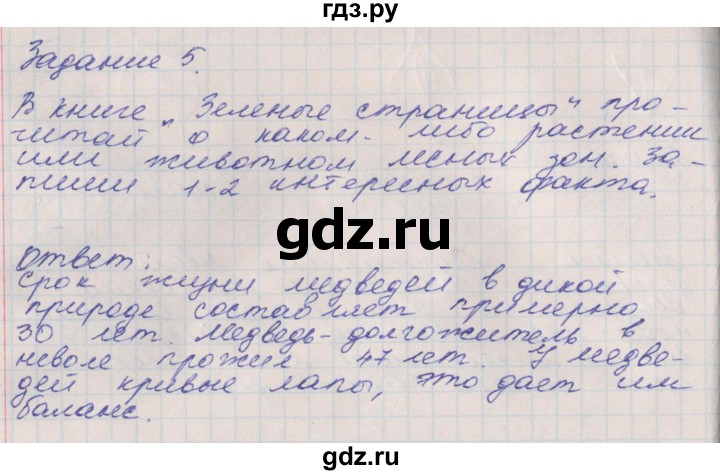 гдз.ру
Задание 5.
В книге „Зеленые страницы" про-
читай о каком-либо растении
или животном лесных зон. За-
пиши 1-2 интересных факта.
gdz.ru
Ответ:
Срок жизни медведей в дикой
природе составляет примерно
30 лет. Медведь-долгожитель в
неволе прожил 47 лет. У медве-
дей кривые лапы, это дает им
баланс.
gdz.ru